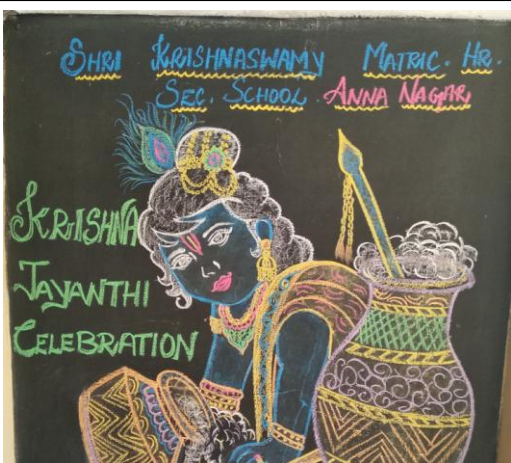 SHRI KRISHNASWAMY MATRIC. HR.
SEC. SCHOOL. ANNA NAGAR,
KRISHNA
JAYANTHI
CELEBRATION